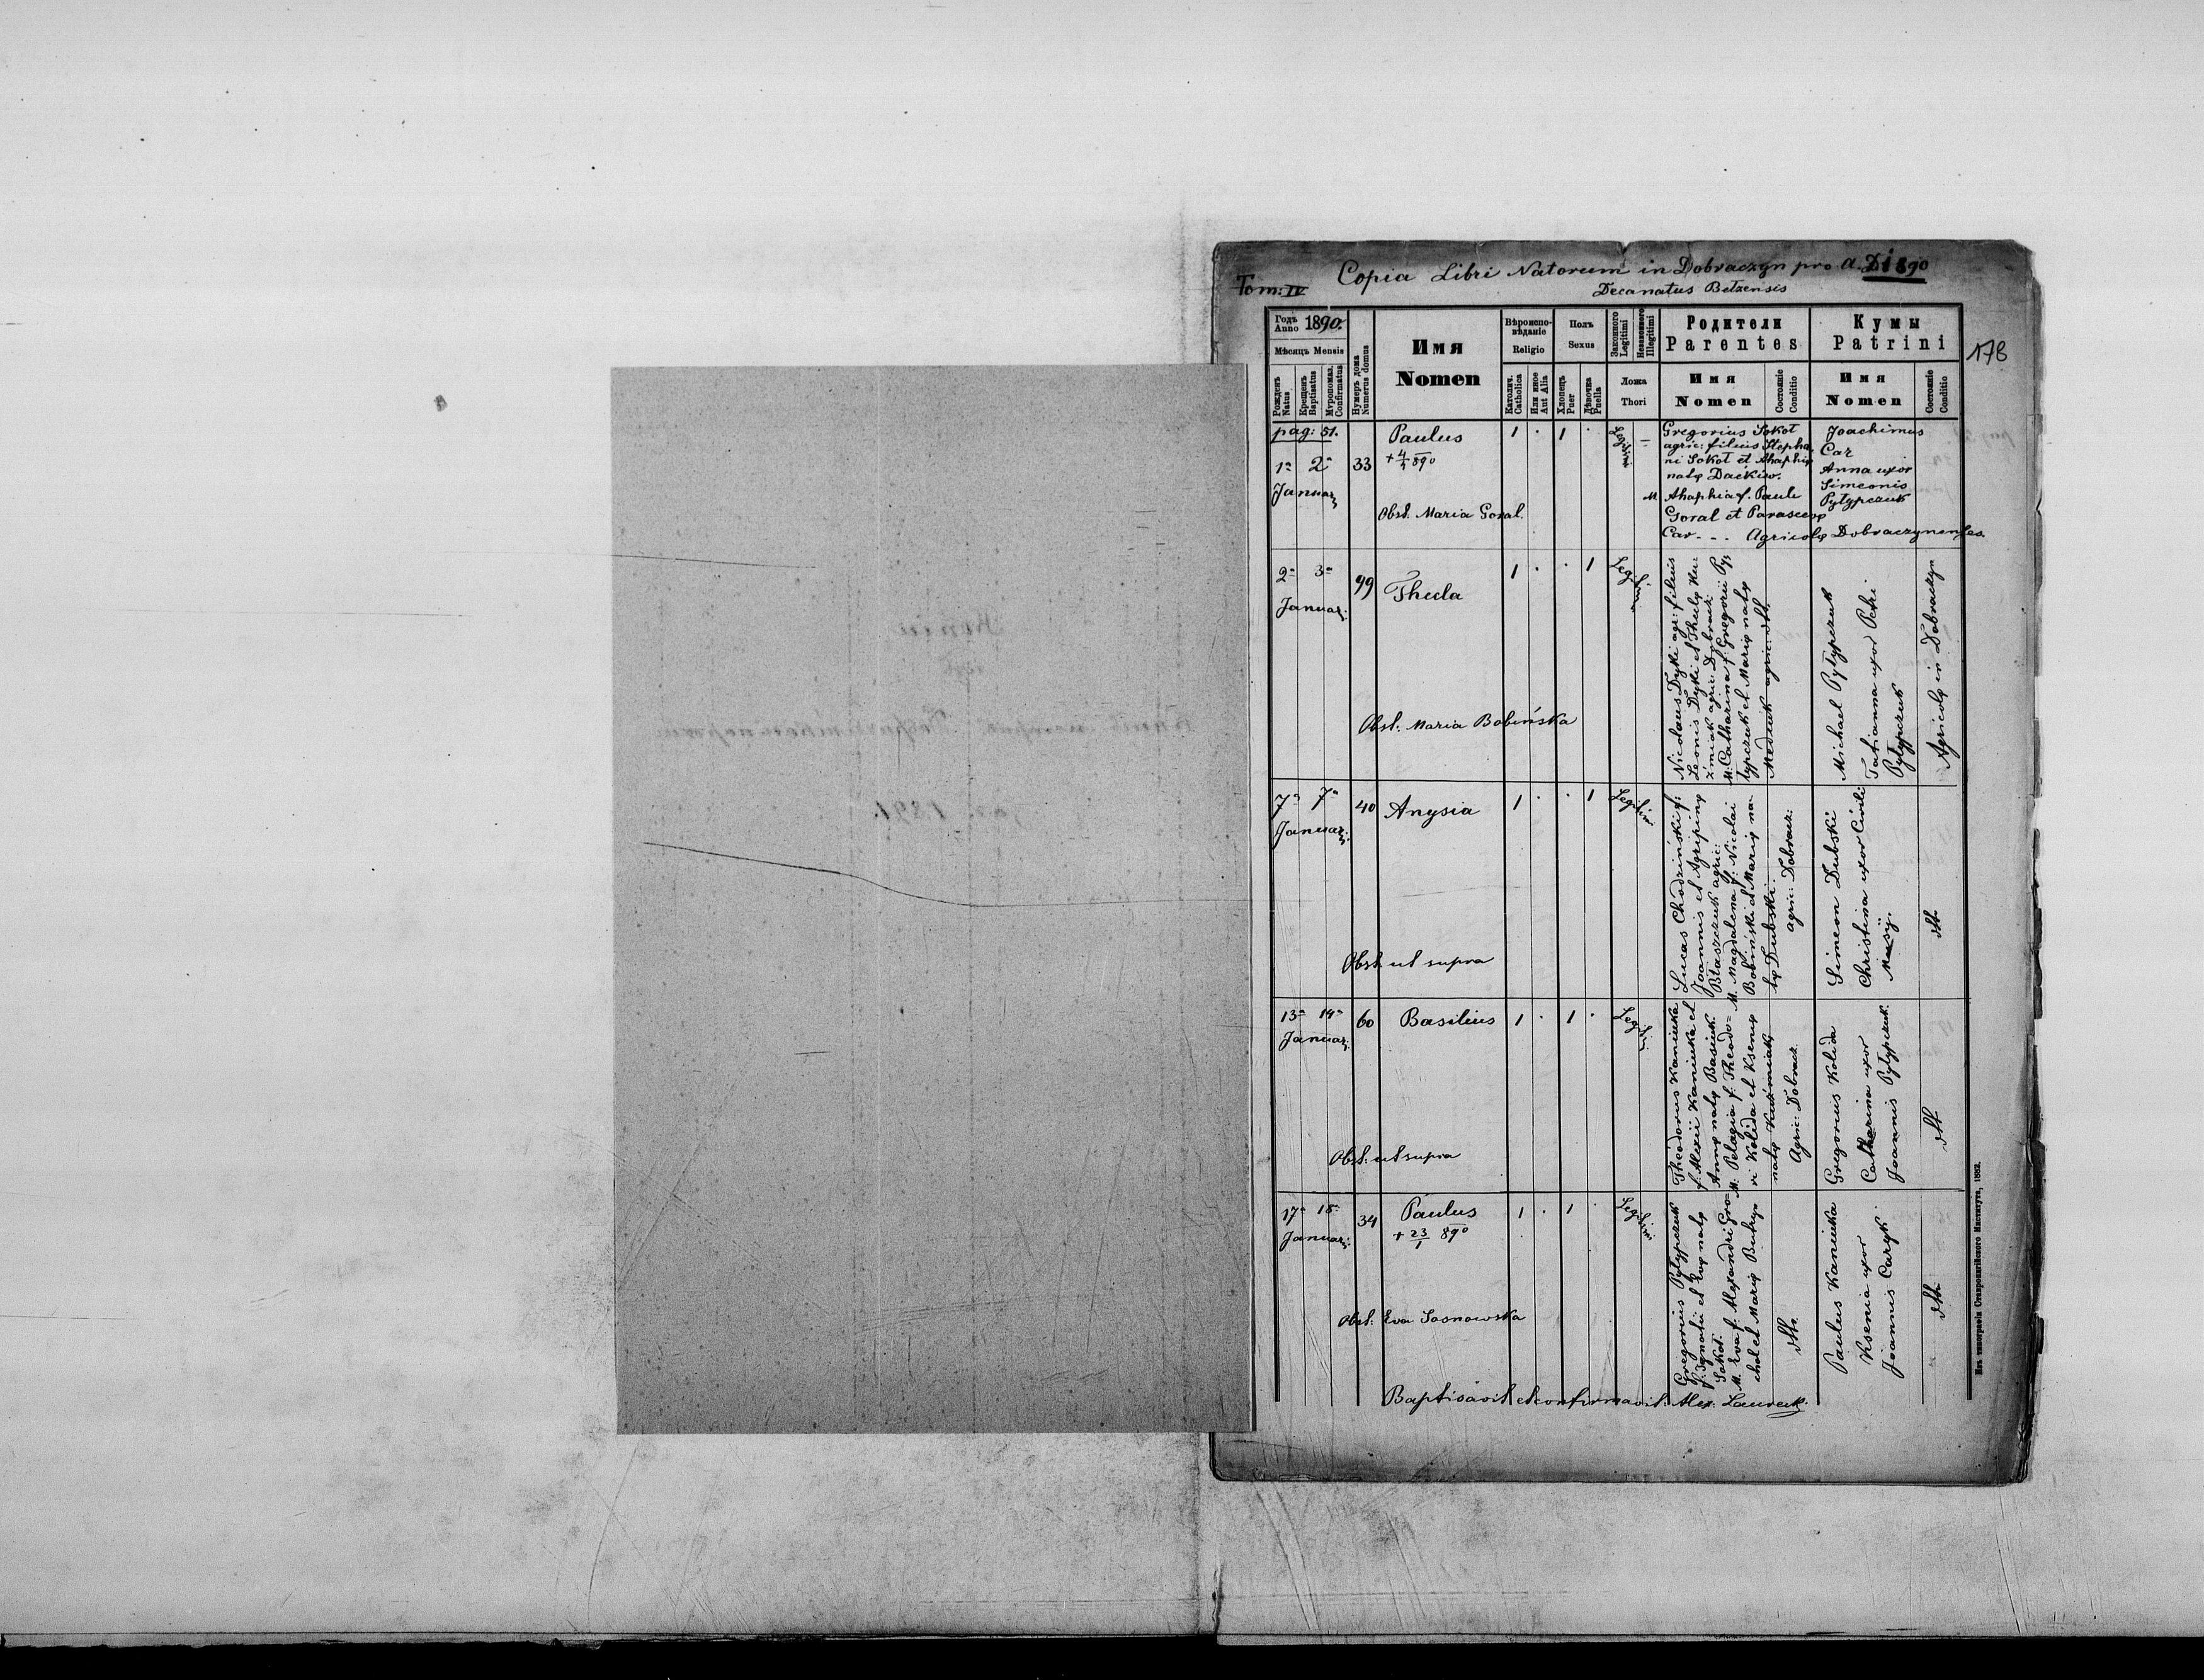 Tom: IV
Copia Libri Natorum in Dobraczyn pro A. D. 1890
Decanatus Betzensis
178
Годъ
Anno 1890.
Мѣсяцъ Mensis
Рожденъ
Natus
Крещенъ
Baptisatus
Мѵропомаз.
Confirmatus
Нумеръ дома
Numerus domus
Имя
Nomen
Вѣроиспо-
вѣданіе
Religio
Католич.
Catholica
Или иное
Aut Alia
Полъ
Sexus
Хлопецъ
Puer
Дѣвочка
Puella
Законного
Legitimi
Незаконного
Illegitimi
Ложа
Thori
Родители
Parentes
Имя
Nomen
Состояніе
Conditio
Кумы
Patrini
Имя
Nomen
Состояніе
Conditio
pag: 51.
1a 2a
Januar
33
Paulus
+ 4/1 890
Obst. Maria Goral.
1 . 1 .
Legitimi
Gregorius Sokot
agric: filius Stepha
ni Sokot et Ahaphię
natę Daćków.
M Ahaphia f. Pauli
Goral et Parascevę
Car - - - Agricolę Dobraczynenses.
Joachimus
Car
Anna uxor
Simeonis
Pytypczuk
2a 3a
Januar:
99
Thecla
Obst. Maria Bobińska
1 . . 1
Legitimi
Nicolaus Dyki agr: filius
Leonis Dyki et Theclę Ku
źmiak agric: Dobracz:
M: Catharina f. Gregorii Py
typczuk et Marię natę
Medziuk agric: dtt.
Michael Pytypczuk
Tatianna uxor Petri
Pytypczuk
Agricolę in Dobraczyn
7a 7a
Januar:
40
Anysia
Obst. ut supra
1 . . 1
Legiti
Lucas Chodziński f.
Joannis et Agripinę
Błaszczuk agric:
M. Magdalena f. Nicolai
Bobiński et Marię na
tę Dubski.
agric: Dobracz:
Simeon Dubski
Christina uxor Cirili
Musij.
dtt.
13a 14a
Januar:
60
Basilius
Obst: ut supra
1 . 1 .
Legitimi
Theodorus Kaniuka
f. Alexii Kaniuka et
Annę natę Basiuk.
M. Pelagia f. Theodo=
ri Kolida et Ksenię
natę Kuźmiak
Agric: Dobracz.
Gregorius Kolida
Catharina uxor
Joannis Pytypczuk.
dtt.
17a 18a
Januar:
34
Paulus
+ 23/1 890
Obst: Eva Sosnowska
1 . 1 .
Legitimi
Gregorius Pytypczuk
f. Ignatii et Evę natę
Sokot.
M. Eva f. Alexandri Gro=
chol et Marię Butryn
dtt.
Paulus Kaniuka
Ksenia uxor
Joannis Caryk.
dtt.
Baptisavit et confirmavit: Alex:
Изъ типографіи Ставропигійского Института, 1883.